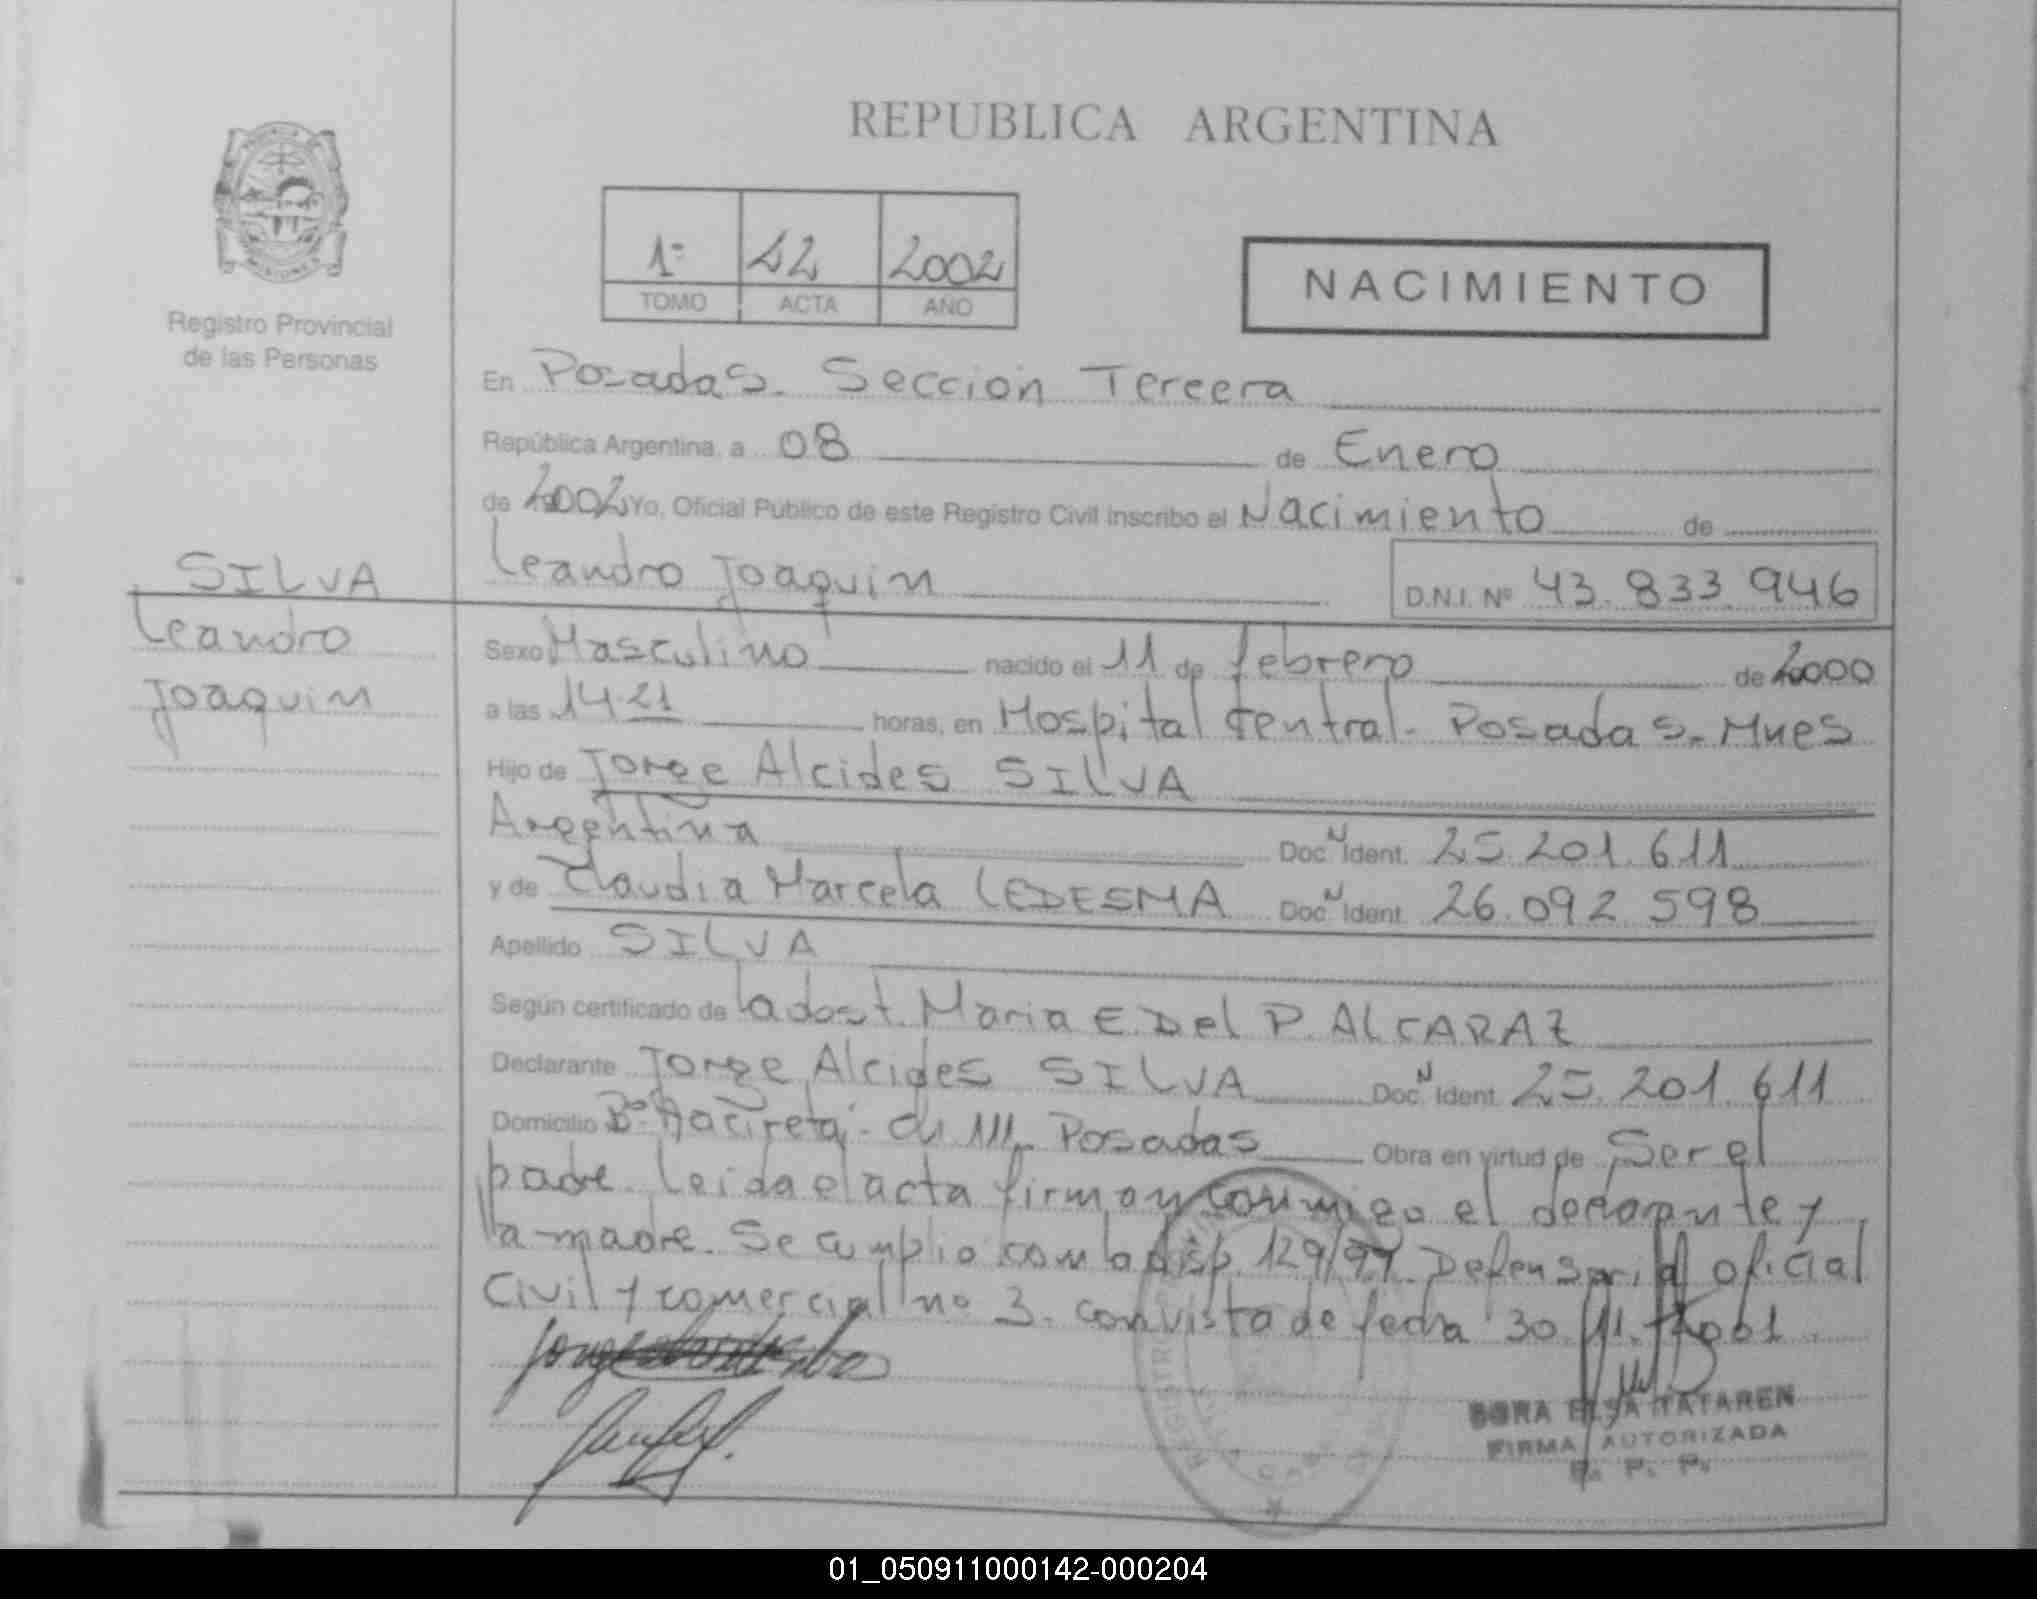 REPUBLICA ARGENTINA
MISIONES
Registro Provincial
de las Personas
1º 42 2002
TOMO ACTA AÑO
NACIMIENTO
En Posadas. Sección Tercera
República Argentina, a 08 de Enero
de 2002 Yo, Oficial Público de este Registro Civil inscribo el Nacimiento de
Leandro Joaquin D.N.I. Nº 43.833.946
SILVA
Leandro
Joaquin
Sexo Masculino nacido el 11 de febrero de 2000
a las 14.21 horas, en Hospital Central. Posadas. Mnes
Hijo de Jorge Alcides SILVA
Argentina Doc. N Ident. 25.201.611
y de Claudia Marcela LEDESMA Doc. N Ident. 26.092.598
Apellido SILVA
Según certificado de la obst. Maria E. Del P. ALCARAZ
Declarante Jorge Alcides SILVA Doc. N Ident. 25.201.611
Domicilio Bº Yaciretá - Ch 111 Posadas Obra en virtud de Ser el
padre. Leida el acta firman conmigo el declarante y
la madre. Se cumplio con la disp. 129/97. Defensoria oficial
Civil y comercial nº 3. con vista de fecha 30.11.2001.
ELSA TATAREN
FIRMA AUTORIZADA
R. P. P.
01_050911000142-000204